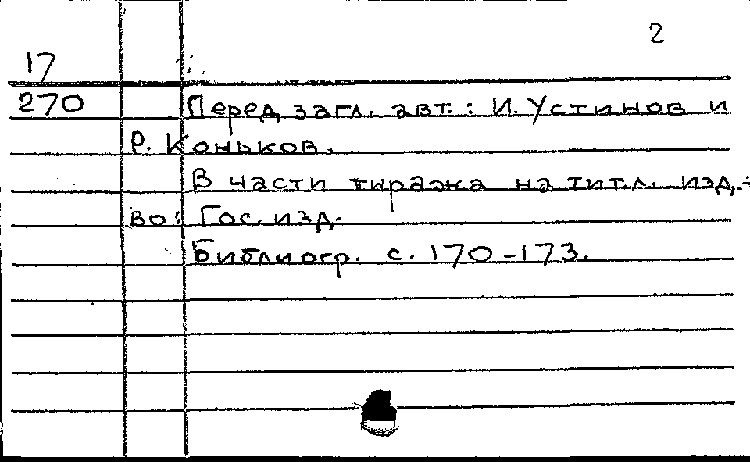 2
17
270 Перед загл. авт.: И. Устинов и
Р. Коньков.
В части тиража на тит.л. изд.-
во: Гос. изд.
Библиогр. с. 170-173.